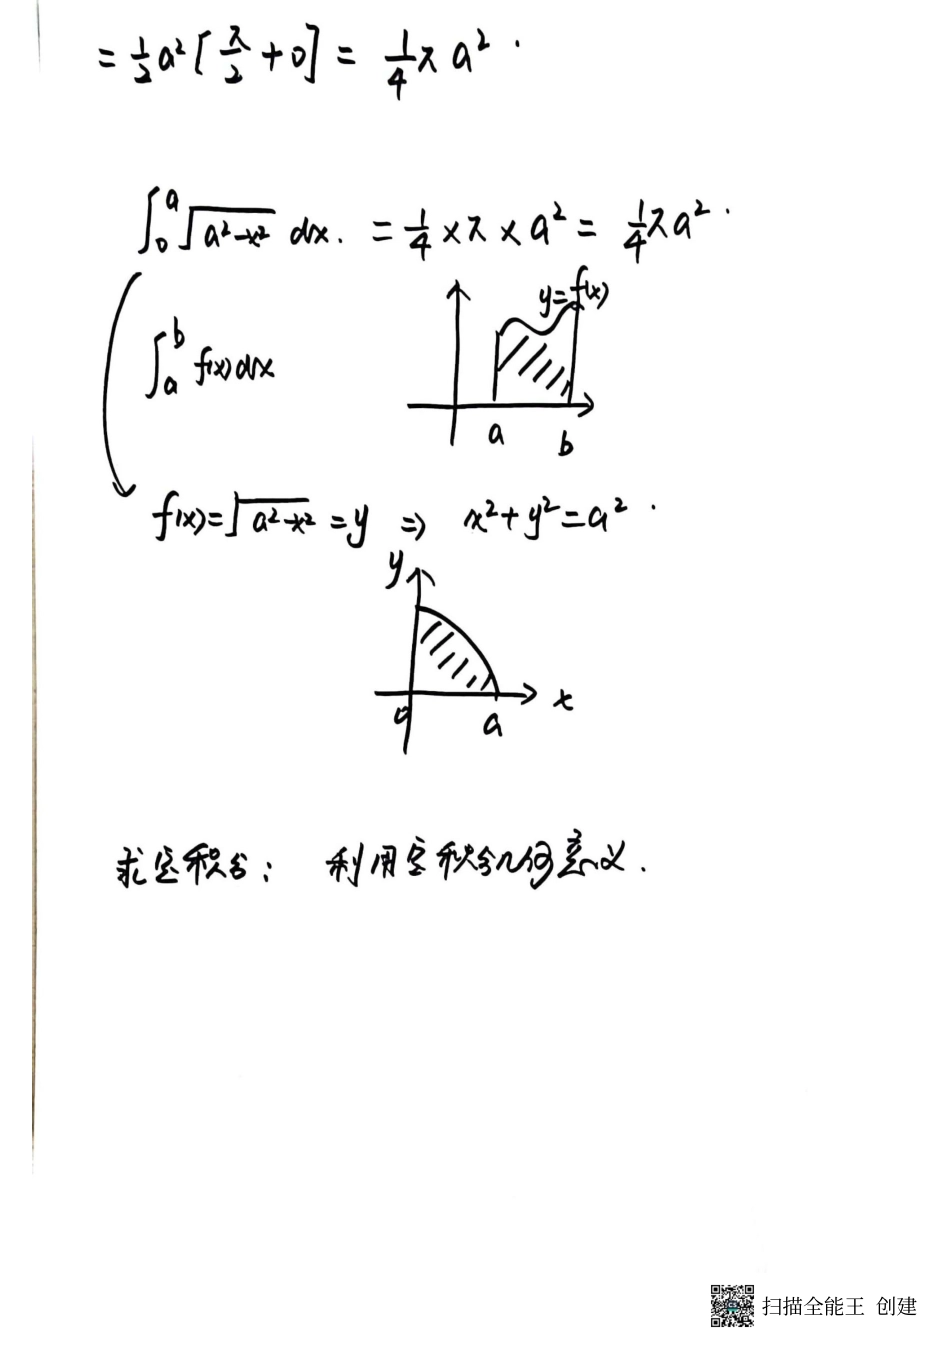 = 1/2 a² [π/2 + 0] = 1/4 π a².
∫₀ᵃ √(a²-x²) dx. = 1/4 × π × a² = 1/4 π a².
y=f(x)
∫ₐᵇ f(x)dx
a b
f(x)=√(a²-x²) =y ⇒ x²+y²=a².
y
x
0 a
求定积分: 利用定积分几何意义.
扫描全能王 创建